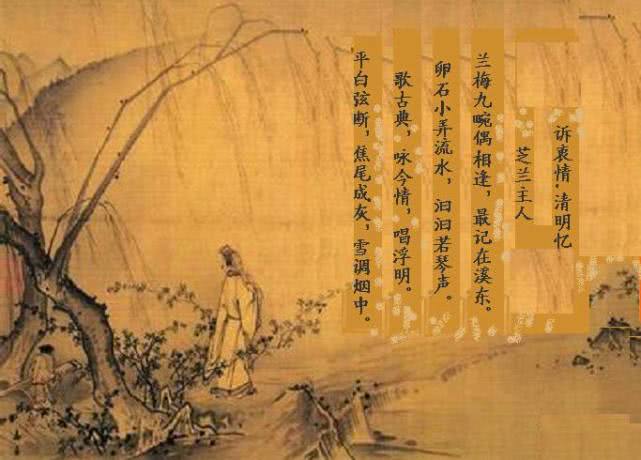 诉衷情·清明忆
芝兰主人
兰梅九畹偶相逢，最记在溪东。
卵石小弄流水，汩汩若琴声。
歌古典，咏今情，唱浮明。
平白弦断，焦尾成灰，雪调烟中。